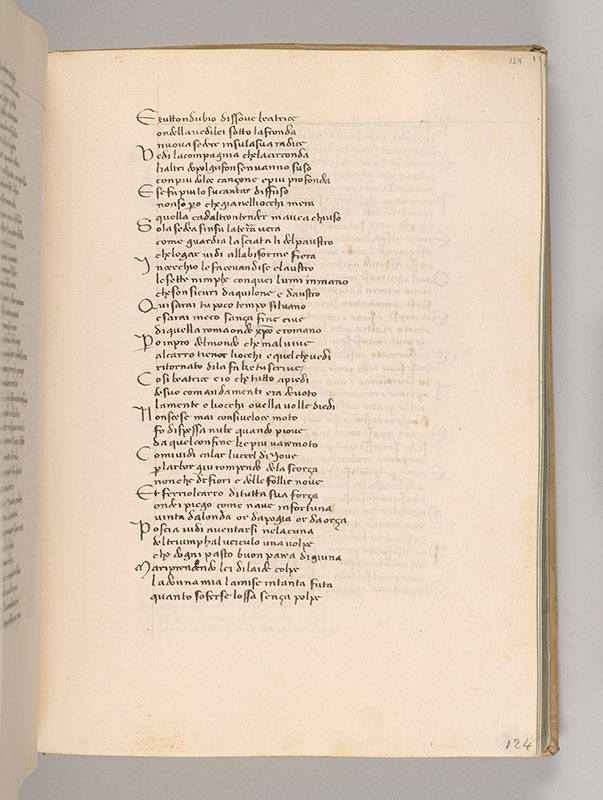 124
E tutton dubio dissove beatrice
ondella vedi lei sotto la fronda
nuova sedere insula sua radice
Vedi la compagnia che la circonda
li altri dopol grifon sen vanno suso
con piu dolce cançone e piu profonda
E se fu piu lo su cantar diffuso
non so pero che gia nelliocchi mera
quella cadaltro ntender mavea chiuso
Sola sedeasi insu la terra vera
come guardia lasciata li del plaustro
che legar vidi alla biforme fiera
In cerchio le facevan di se claustro
le sette nimphe con quei lumi in mano
che son sicuri daquilone e daustro
Qui sarai tu poco tempo silvano
e sarai meco sança fine cive
di quella roma onde xpo e romano
Pero inpro del mondo che mal vive
al carro tienor liocchi e quel che vedi
ritornato di la fa ke tu scrive
Cosi beatrice e io che tutto apiedi
de suo comandamenti era devoto
la mente e liocchi ovella volle diedi
Non scese mai con si veloce moto
foco di spessa nube quando piove
da quel confine ke piu va remoto
Comio vidi calar luccel di Jove
per larbor giu rompendo dela scorça
non che de fiori e delle follie nove
Et ferriol carro di tutta sua força
ondei piego come nave infortuna
vinta dalonda or dapogia or da orça
Poscia vidi aventarsi nela cuna
del triumphal veiculo una volpe
che dogni pasto buon parea digiuna
Ma riprendendo lei di laide colpe
la donna mia la mise intanta futa
quanto soferse lossa sença polpe
124